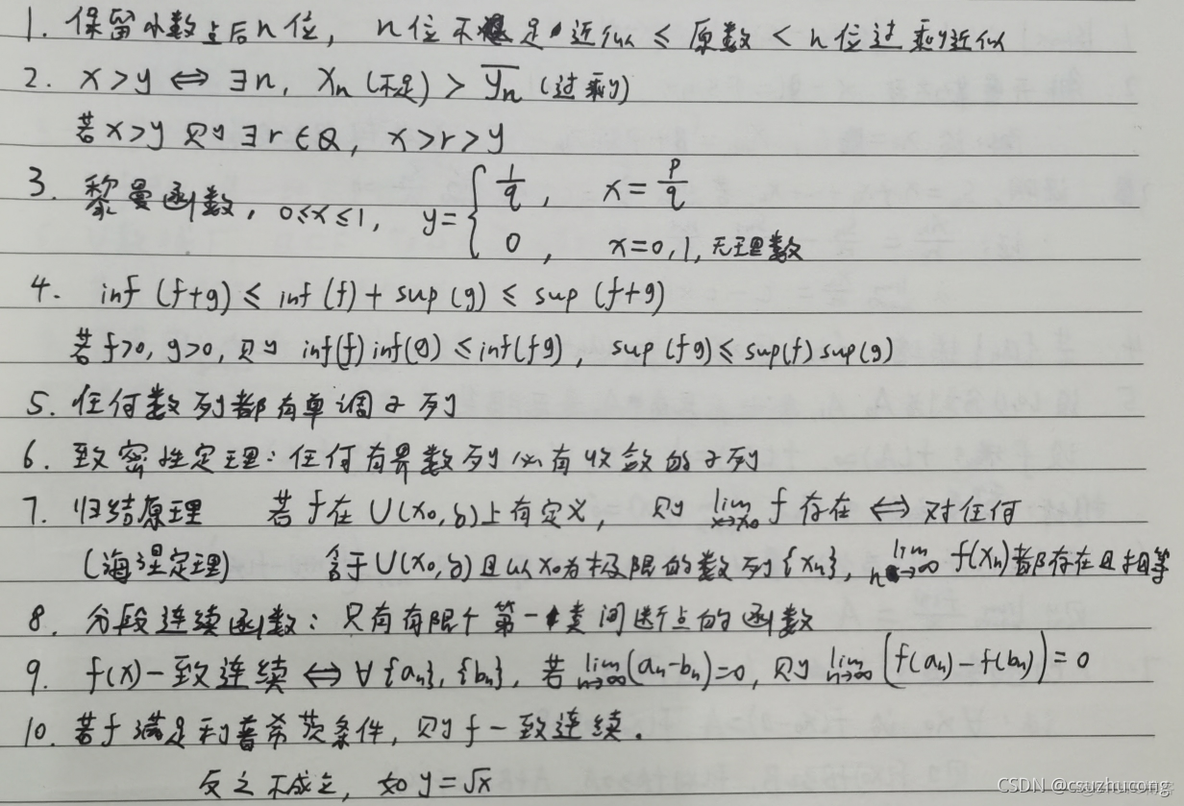 1. 保留小数点后n位, n位不足近似 ≤ 原数 < n位过剩近似
2. x>y ⇔ ∃n, xₙ (不足) > y̅ₙ (过剩)
若x>y 则 ∃r∈Q, x>r>y
3. 黎曼函数, 0≤x≤1, y={ 1/q , x=p/q
0 , x=0,1,无理数
4. inf (f+g) ≤ inf (f) + sup (g) ≤ sup (f+g)
若f>0, g>0, 则 inf(f) inf(g) ≤ inf(fg), sup (fg) ≤ sup(f) sup(g)
5. 任何数列都有单调子列
6. 致密性定理: 任何有界数列必有收敛的子列
7. 归结原理 若f在U(x₀,δ)上有定义, 则 lim x→x₀ f 存在 ⇔ 对任何
(海涅定理) 含于U(x₀,δ)且以x₀为极限的数列{xₙ}, lim n→∞ f(xₙ)都存在且相等
8. 分段连续函数: 只有有限个第一类间断点的函数
9. f(x)一致连续 ⇔ ∀{aₙ}, {bₙ}, 若 lim n→∞ (aₙ-bₙ)=0, 则 lim n→∞ (f(aₙ)-f(bₙ))=0
10. 若f满足利普希茨条件, 则f一致连续.
反之不成立, 如y=√x
CSDN @csuzhucong